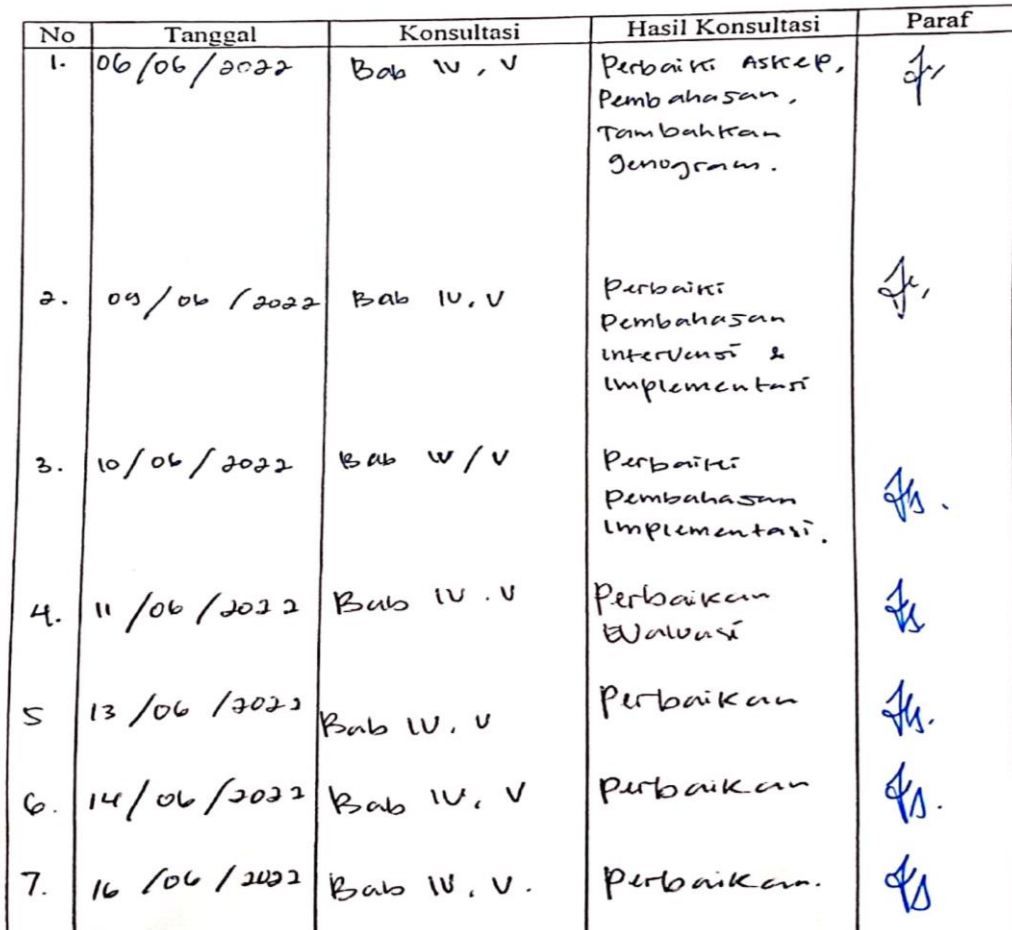 No Tanggal Konsultasi Hasil Konsultasi Paraf
1. 06/06/2022 Bab IV, V Perbaiki Askep,
Pembahasan,
Tambahkan
genogram.
2. 09/06/2022 Bab IV, V Perbaiki
Pembahasan
intervensi &
implementasi
3. 10/06/2022 Bab IV/V Perbaiki
Pembahasan
implementasi.
4. 11/06/2022 Bab IV. V Perbaikan
Evaluasi
5 13/06/2022 Bab IV, V Perbaikan
6. 14/06/2022 Bab IV, V Perbaikan
7. 16/06/2022 Bab IV, V. Perbaikan.